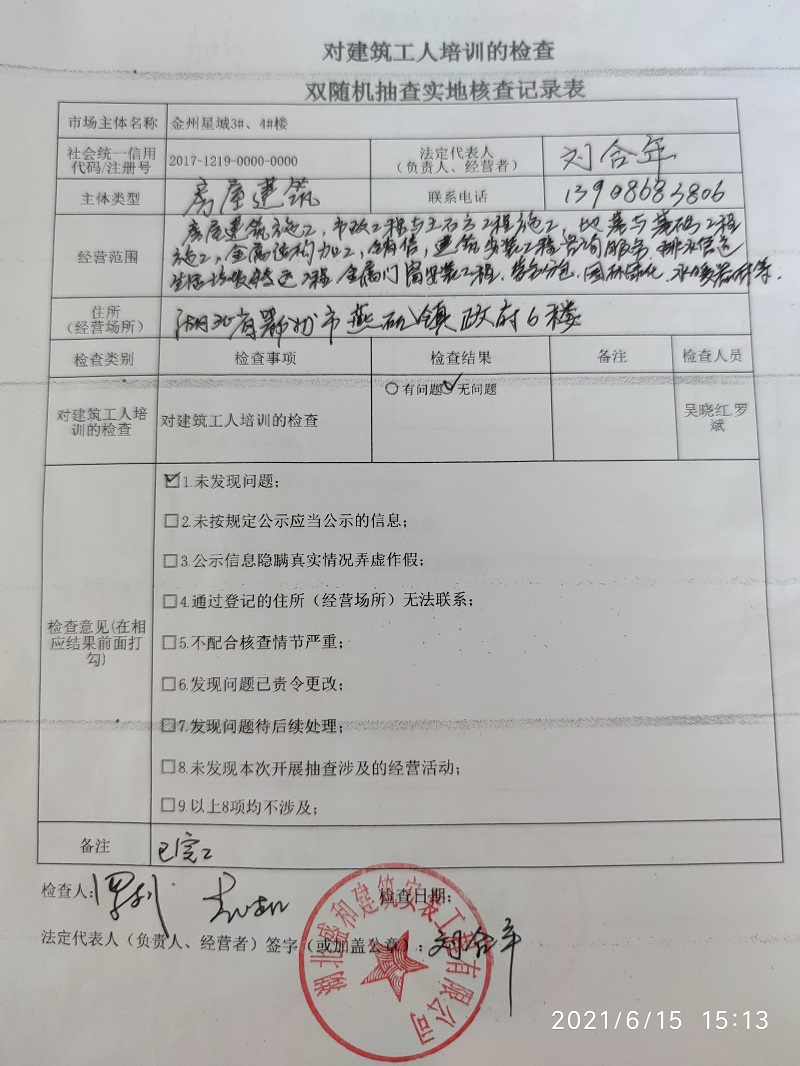 对建筑工人培训的检查
双随机抽查实地核查记录表
市场主体名称 金州星城3#、4#楼
社会统一信用代码/注册号 2017-1219-0000-0000 法定代表人（负责人、经营者） 刘合年
主体类型 房屋建筑 联系电话 13908683806
经营范围 房屋建筑施工，市政工程与土石方工程施工，地基与基础工程
施工，金属结构加工，销售，建筑安装工程咨询服务
工程 金属门窗安装工程，园林绿化，等.
住所（经营场所） 湖北省鄂州市燕矶镇政府6楼
检查类别 检查事项 检查结果 备注 检查人员
对建筑工人培训的检查 对建筑工人培训的检查 ○有问题 ✓无问题 吴晓红,罗斌
检查意见(在相应结果前面打勾)
☑1.未发现问题；
□2.未按规定公示应当公示的信息；
□3.公示信息隐瞒真实情况弄虚作假；
□4.通过登记的住所（经营场所）无法联系；
□5.不配合核查情节严重；
□6.发现问题已责令更改；
□7.发现问题待后续处理；
□8.未发现本次开展抽查涉及的经营活动；
□9.以上8项均不涉及；
备注 已完工
检查人: 检查日期:
法定代表人（负责人、经营者）签字（或加盖公章）: 刘合年
湖北盛和建筑安装工程有限公司
2021/6/15 15:13